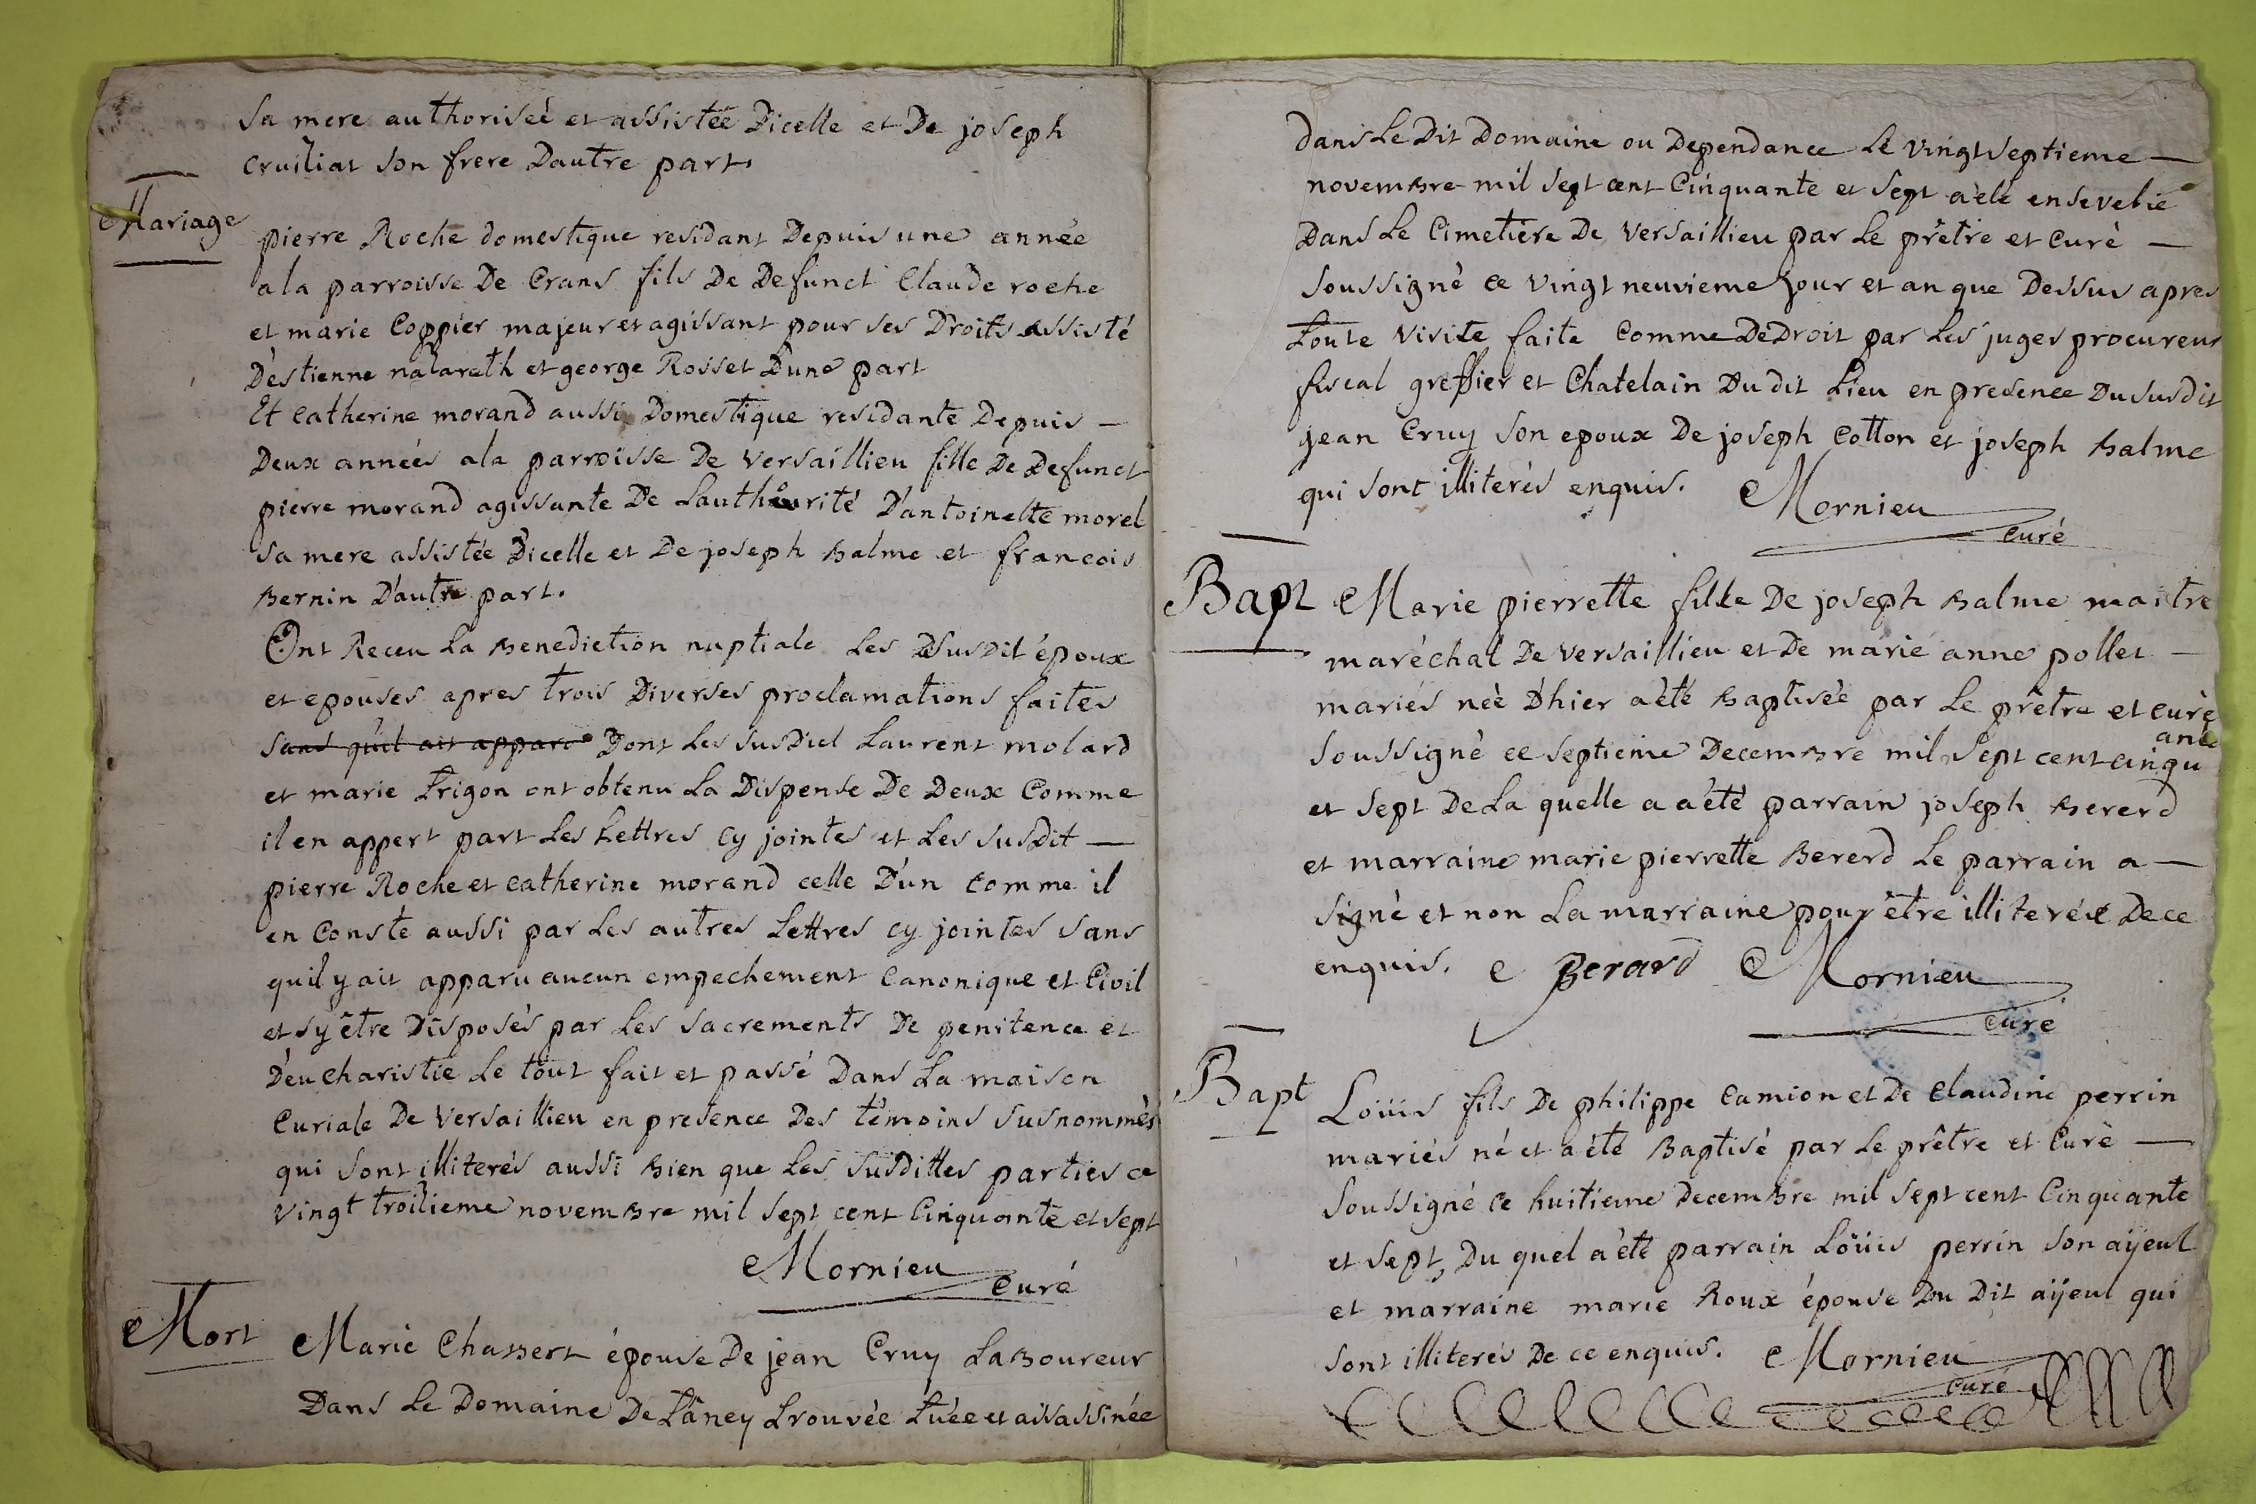 Sa mere authorisée et assistée Dicelle et De joseph
cruiliat Son frere Dautre part
Mariage
pierre Roche domestique residant Depuis une année
a la parroisse De Crans fils De Defunct Claude roche
et marie Coppier majeur et agissant pour ses Droits assisté
D'estienne nazareth et george Rosset D'une part
Et catherine morand aussi Domestique residante Depuis —
Deux années a la parroisse De Versaillieu fille De Defunct
pierre morand agissante De Lauthorité D'antoinette morel
sa mere assistée Dicelle et De joseph Balme et francois
Bernin D'autre part.
Ont Receu La Benediction nuptiale Les Susdit époux
et epouses apres trois Diverses proclamations faites
sans qu'il ait apparu Dont Les susdict Laurent molard
et marie Trigon ont obtenu La Dispense De Deux Comme
il en appert part Les Lettres cy jointes et Les susdit —
pierre Roche et catherine morand celle D'un comme il
en Conste aussi par Les autres Lettres cy jointes sans
quil y ait apparu aucun empechement Canonique et Civil
et s'y être Disposés par Les sacrements De penitence et
D'eucharistie Le tout fait et passé Dans La maison
Curiale De Versaillieu en presence Des témoins susnommés
qui sont illiterés aussi Bien que Les susdittes parties ce
vingt troisieme novembre mil sept cent Cinquante et sept
Mornieu
Curé
Mort
Marie Chabert épouse De jean Cruy Laboureur
Dans Le Domaine De Laney trouvée tuée et assassinée
dans Le Dit Domaine ou Dependance Le vingt septieme —
novembre mil sept cent Cinquante et sept a été ensevelie
Dans Le Cimetiere De Versaillieu par Le prêtre et Curé —
Soussigné ce vingt neuvieme jour et an que Dessus apres
toute visite faite Comme De Droit par Les juges procureur
fiscal greffier et Chatelain Du dit Lieu en presence Du susdit
jean Cruy son epoux De joseph Cotton et joseph Balme
qui sont illiterés enquis. Mornieu
curé
Bapt
Marie pierrette fille De joseph Balme maitre
maréchal De Versaillieu et De marie anne pollet —
mariés née D'hier a été Baptisée par Le prêtre et curé
Soussigné ce septieme Decembre mil sept cent cinqu
ante
et sept De La quelle a a été parrain joseph Bererd
et marraine marie pierrette Bererd Le parrain a —
signé et non La marraine pour être illiterée De ce
enquis. Berard Mornieu
curé
Bapt
Loüis fils De philippe Camion et De Claudine perrin
mariés né et a été Baptisé par Le prêtre et Curé —
Soussigné ce huitieme Decembre mil sept cent Cinquante
et sept, Du quel a été parrain Loüis perrin Son aÿeul
et marraine marie Roux épouse Du Dit aÿeul qui
sont illiterés De ce enquis. Mornieu
curé